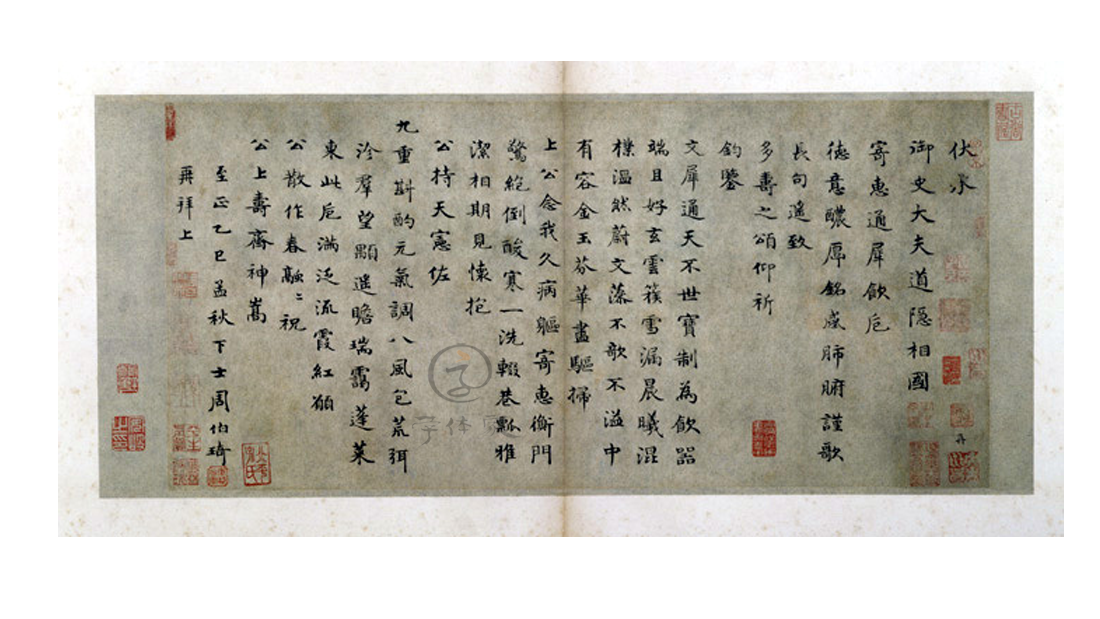 伏承
御史大夫道隐相國
寄惠通犀飲卮
德意醲厚銘感肺腑謹歌
長句遥致
多壽之頌仰祈
鈞鑒
文犀通天不世寶制為飲器
端且好玄雲簇雪漏晨曦混
樸温然蔚文藻不歌不溢中
有容金玉芬華盡驅掃
上公念我久病軀寄惠衡門
驚絶倒酸寒一洗輟巷瓢雅
潔相期見懐抱
公持天憲佐
九重斟酌元氣調八風包荒弭
沴羣望顒遥瞻瑞靄蓬莱
東此卮滿泛流霞紅願
公散作春融〻祝
公上壽齋神嵩
至正乙巳孟秋下士周伯琦
再拜上